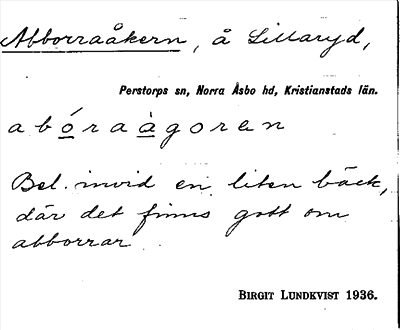 Abborraåkern, å Lillaryd,
Perstorps sn, Norra Åsbo hd, Kristianstads län.
abóraàgoren
Bel. invid en liten bäck,
där det finns gott om
abborrar.
BIRGIT LUNDKVIST 1936.